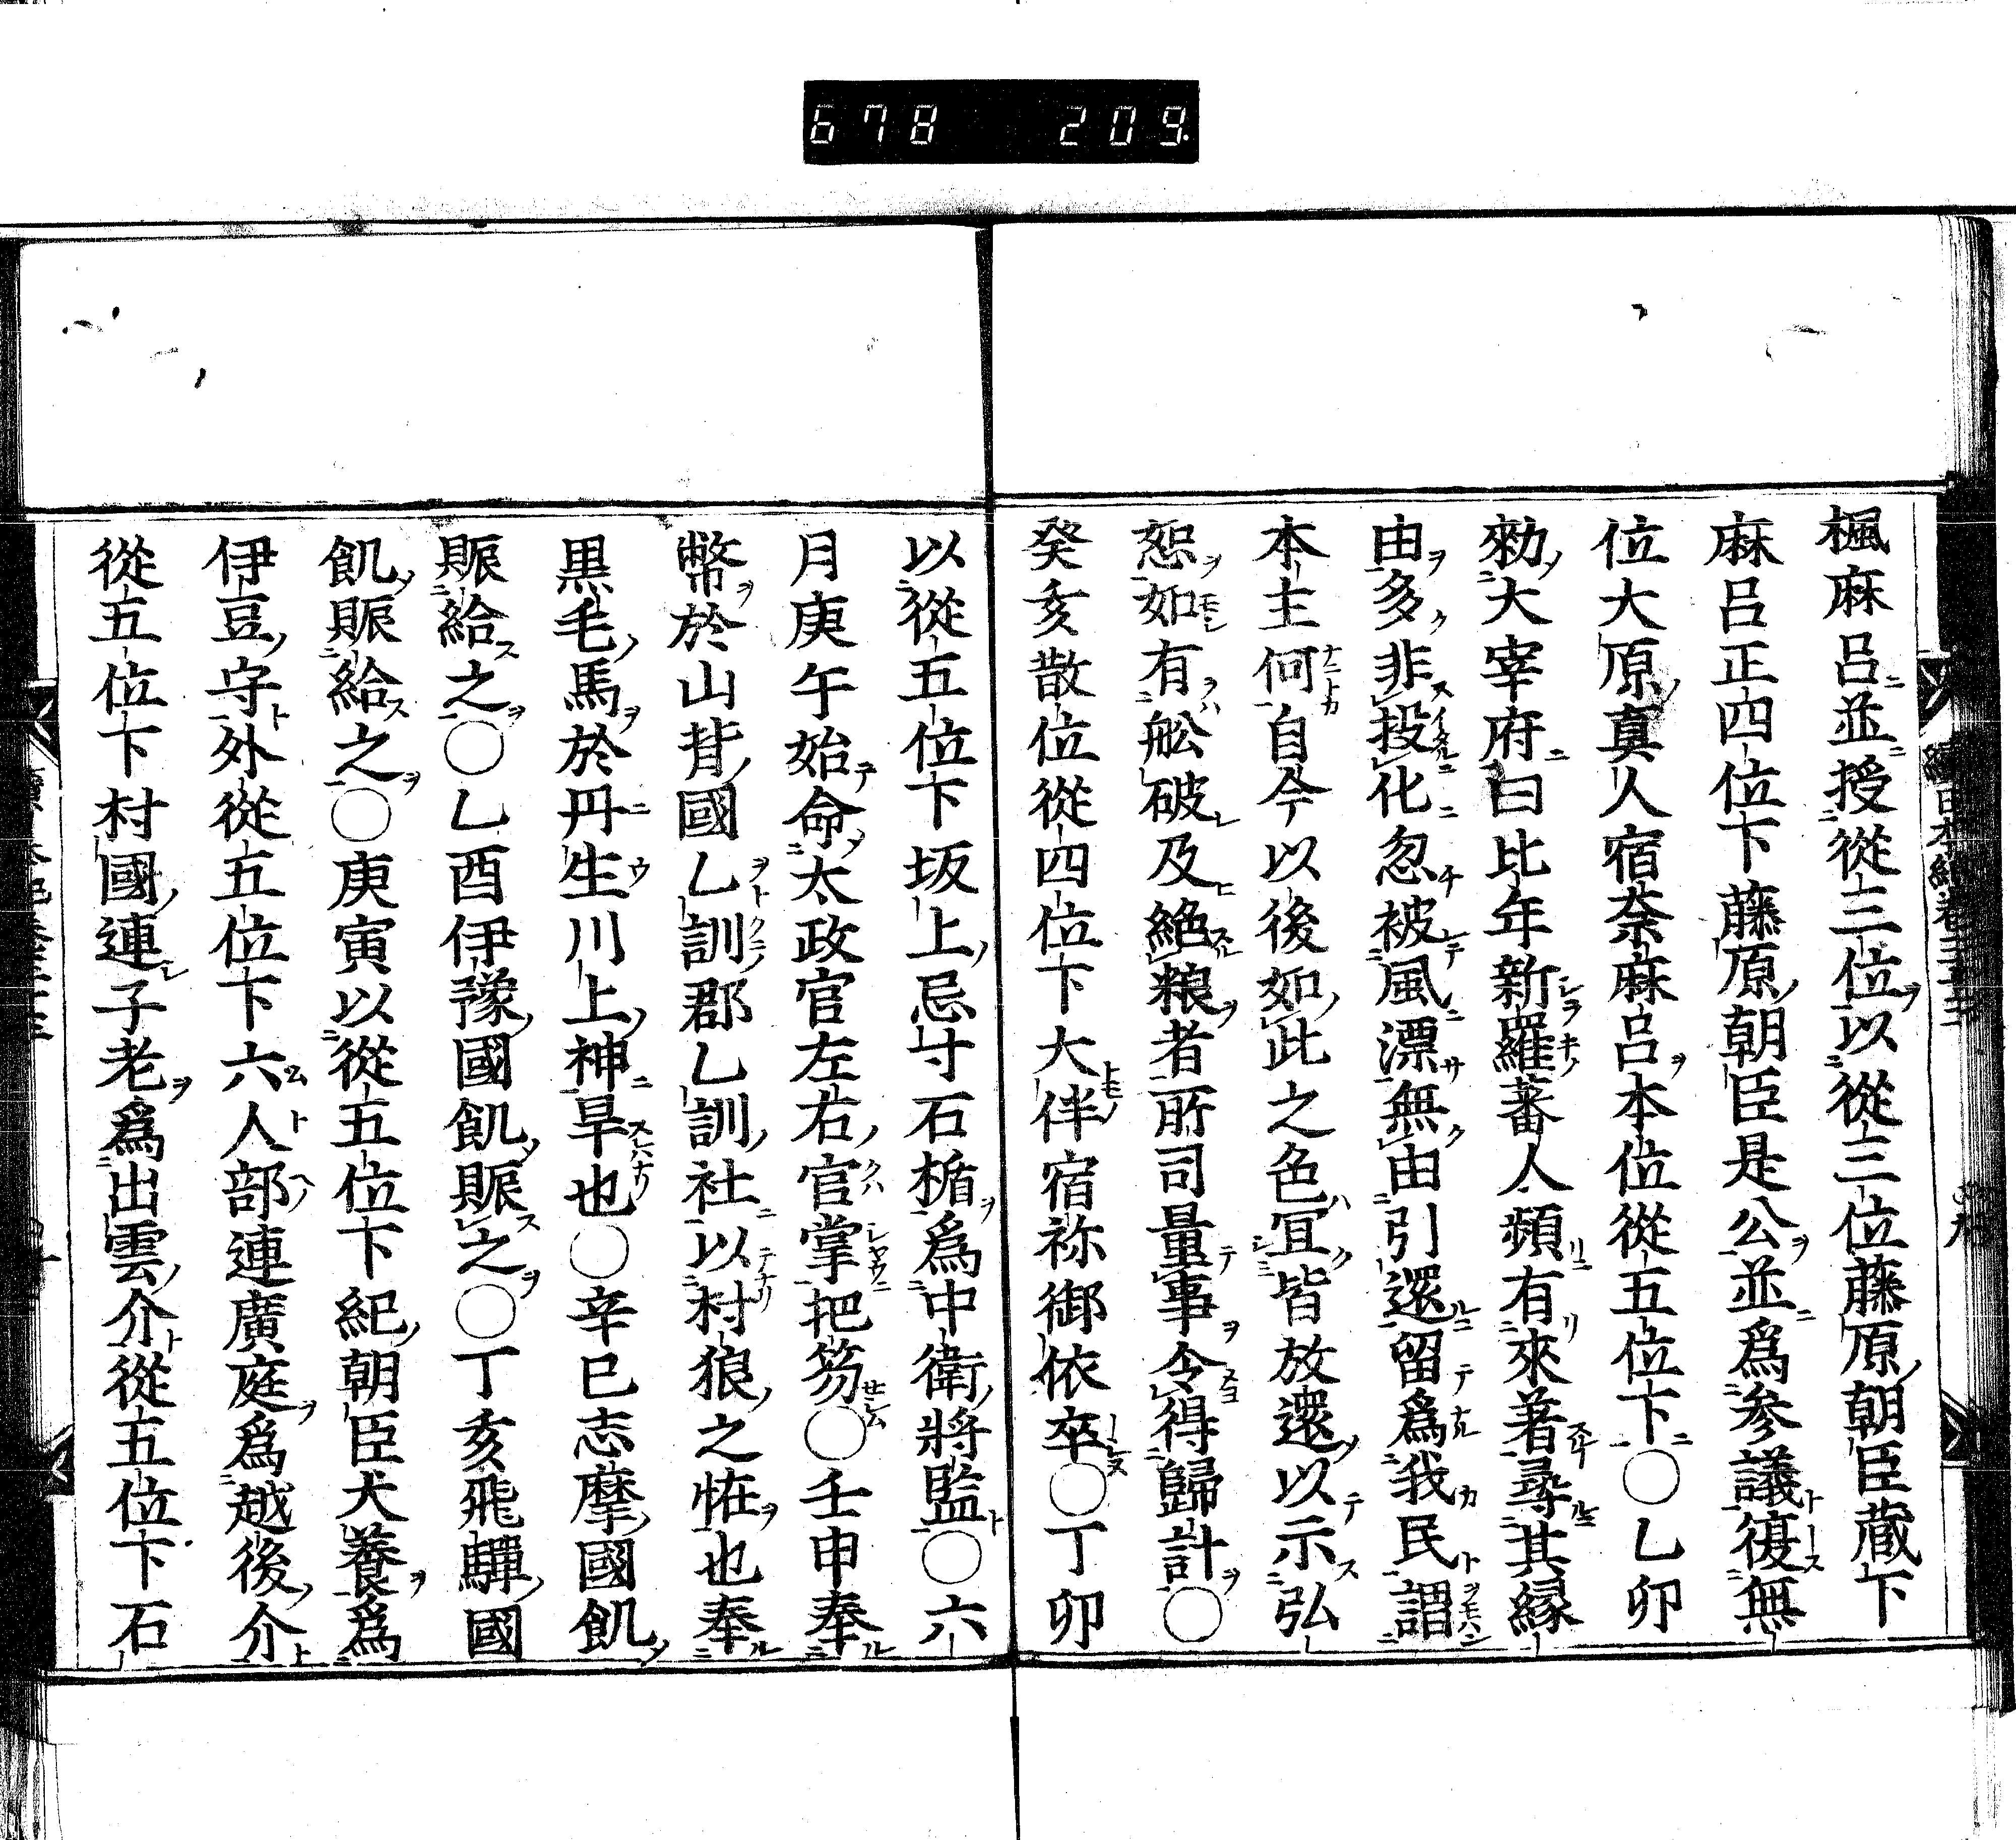 678 209
楓麻呂並授從三位以從三位藤原朝臣蔵下
麻呂正四位下藤原朝臣是公並爲参議復無
位大原真人宿奈麻呂本位從五位下○乙卯
勑大宰府曰比年新羅蕃人頻有來著尋其縁
由多非投化忽被風漂無由引還留爲我民謂
本主何自今以後如此之色冝皆放還以示弘
恕如有舩破及絶粮者所司量事令得歸計○
癸亥散位從四位下大伴宿祢御依卒○丁卯
以從五位下坂上忌寸石楯爲中衛將監○六
月庚午始命太政官左右官掌把笏○壬申奉
幣於山背國乙訓郡乙訓社以村狼之恠也奉
黒毛馬於丹生川上神旱也○辛巳志摩國飢
賑給之○乙酉伊豫國飢賑之○丁亥飛驒國
飢賑給之○庚寅以從五位下紀朝臣犬養爲
伊豆守外從五位下六人部連廣庭爲越後介
從五位下村國連子老爲出雲介從五位下石